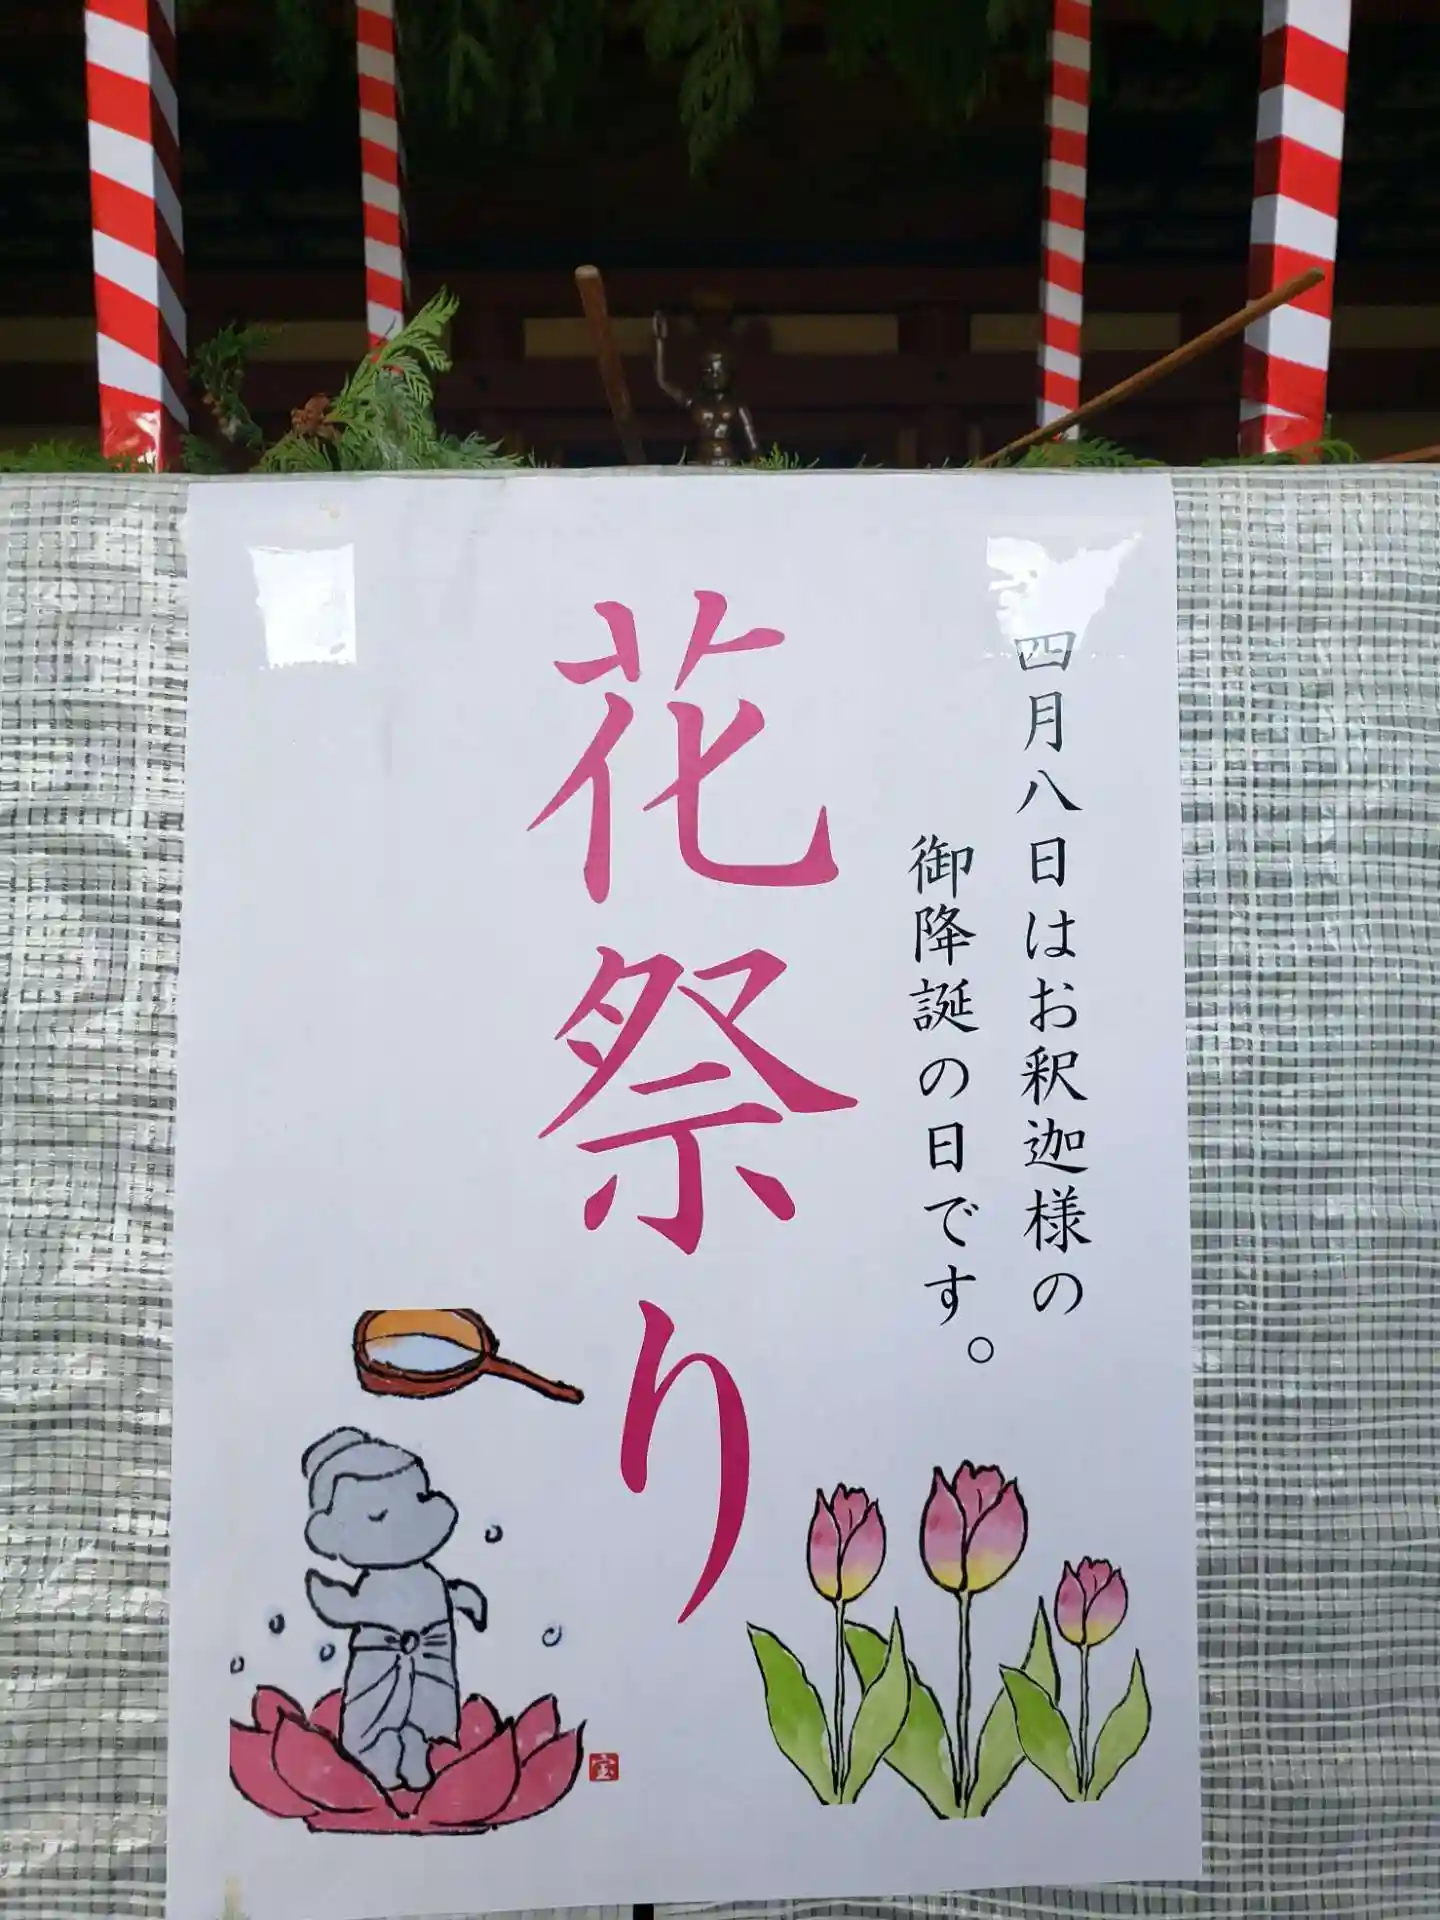 四月八日はお釈迦様の
御降誕の日です。
花祭り
宝